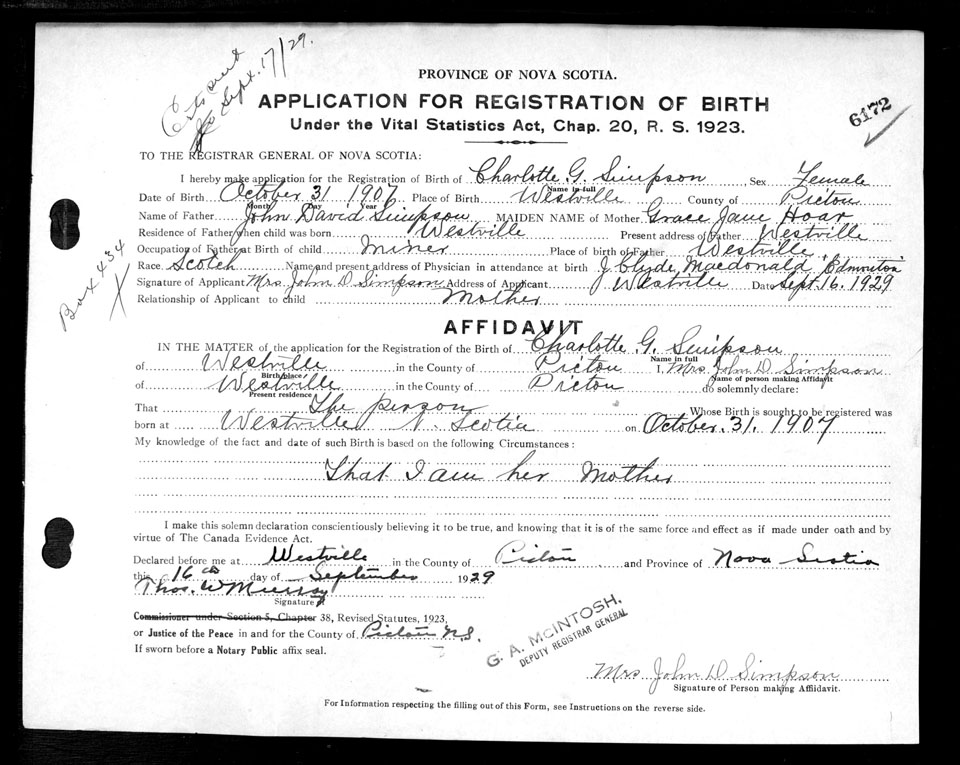 Certs sent
Sept. 17/29.
PROVINCE OF NOVA SCOTIA.
APPLICATION FOR REGISTRATION OF BIRTH
Under the Vital Statistics Act, Chap. 20, R. S. 1923.
6172
TO THE REGISTRAR GENERAL OF NOVA SCOTIA:
I hereby make application for the Registration of Birth of Charlotte G. Simpson Sex Female
Name in full
Date of Birth October 31 1907 Place of Birth Westville County of Pictou
Month Day Year
Name of Father John David Simpson MAIDEN NAME of Mother Grace Jane Hoar
Residence of Father when child was born Westville Present address of Father Westville
Occupation of Father at Birth of child Miner Place of birth of Father Westville
Race Scotch Name and present address of Physician in attendance at birth J. Clyde Macdonald, Edmonton
Signature of Applicant Mrs. John D. Simpson Address of Applicant Westville Date Sept. 16. 1929
Relationship of Applicant to child Mother
Box 434
X
AFFIDAVIT
IN THE MATTER of the application for the Registration of the Birth of Charlotte G. Simpson
Name in full
of Westville in the County of Pictou I, Mrs John D Simpson
Birthplace Name of person making Affidavit
of Westville in the County of Pictou do solemnly declare:
Present residence
That The person Whose Birth is sought to be registered was
born at Westville N. Scotia on October. 31. 1907
My knowledge of the fact and date of such Birth is based on the following Circumstances:
That I am her Mother
I make this solemn declaration conscientiously believing it to be true, and knowing that it is of the same force and effect as if made under oath and by
virtue of The Canada Evidence Act.
Declared before me at Westville in the County of Pictou and Province of Nova Scotia
this 16th day of September 1929
Thos. W Murray
Signature
Commissioner under Section 5, Chapter 38, Revised Statutes, 1923,
or Justice of the Peace in and for the County of Pictou N.S.
If sworn before a Notary Public affix seal.
G. A. McINTOSH,
DEPUTY REGISTRAR GENERAL
Mrs John D Simpson
Signature of Person making Affidavit.
For Information respecting the filling out of this Form, see Instructions on the reverse side.